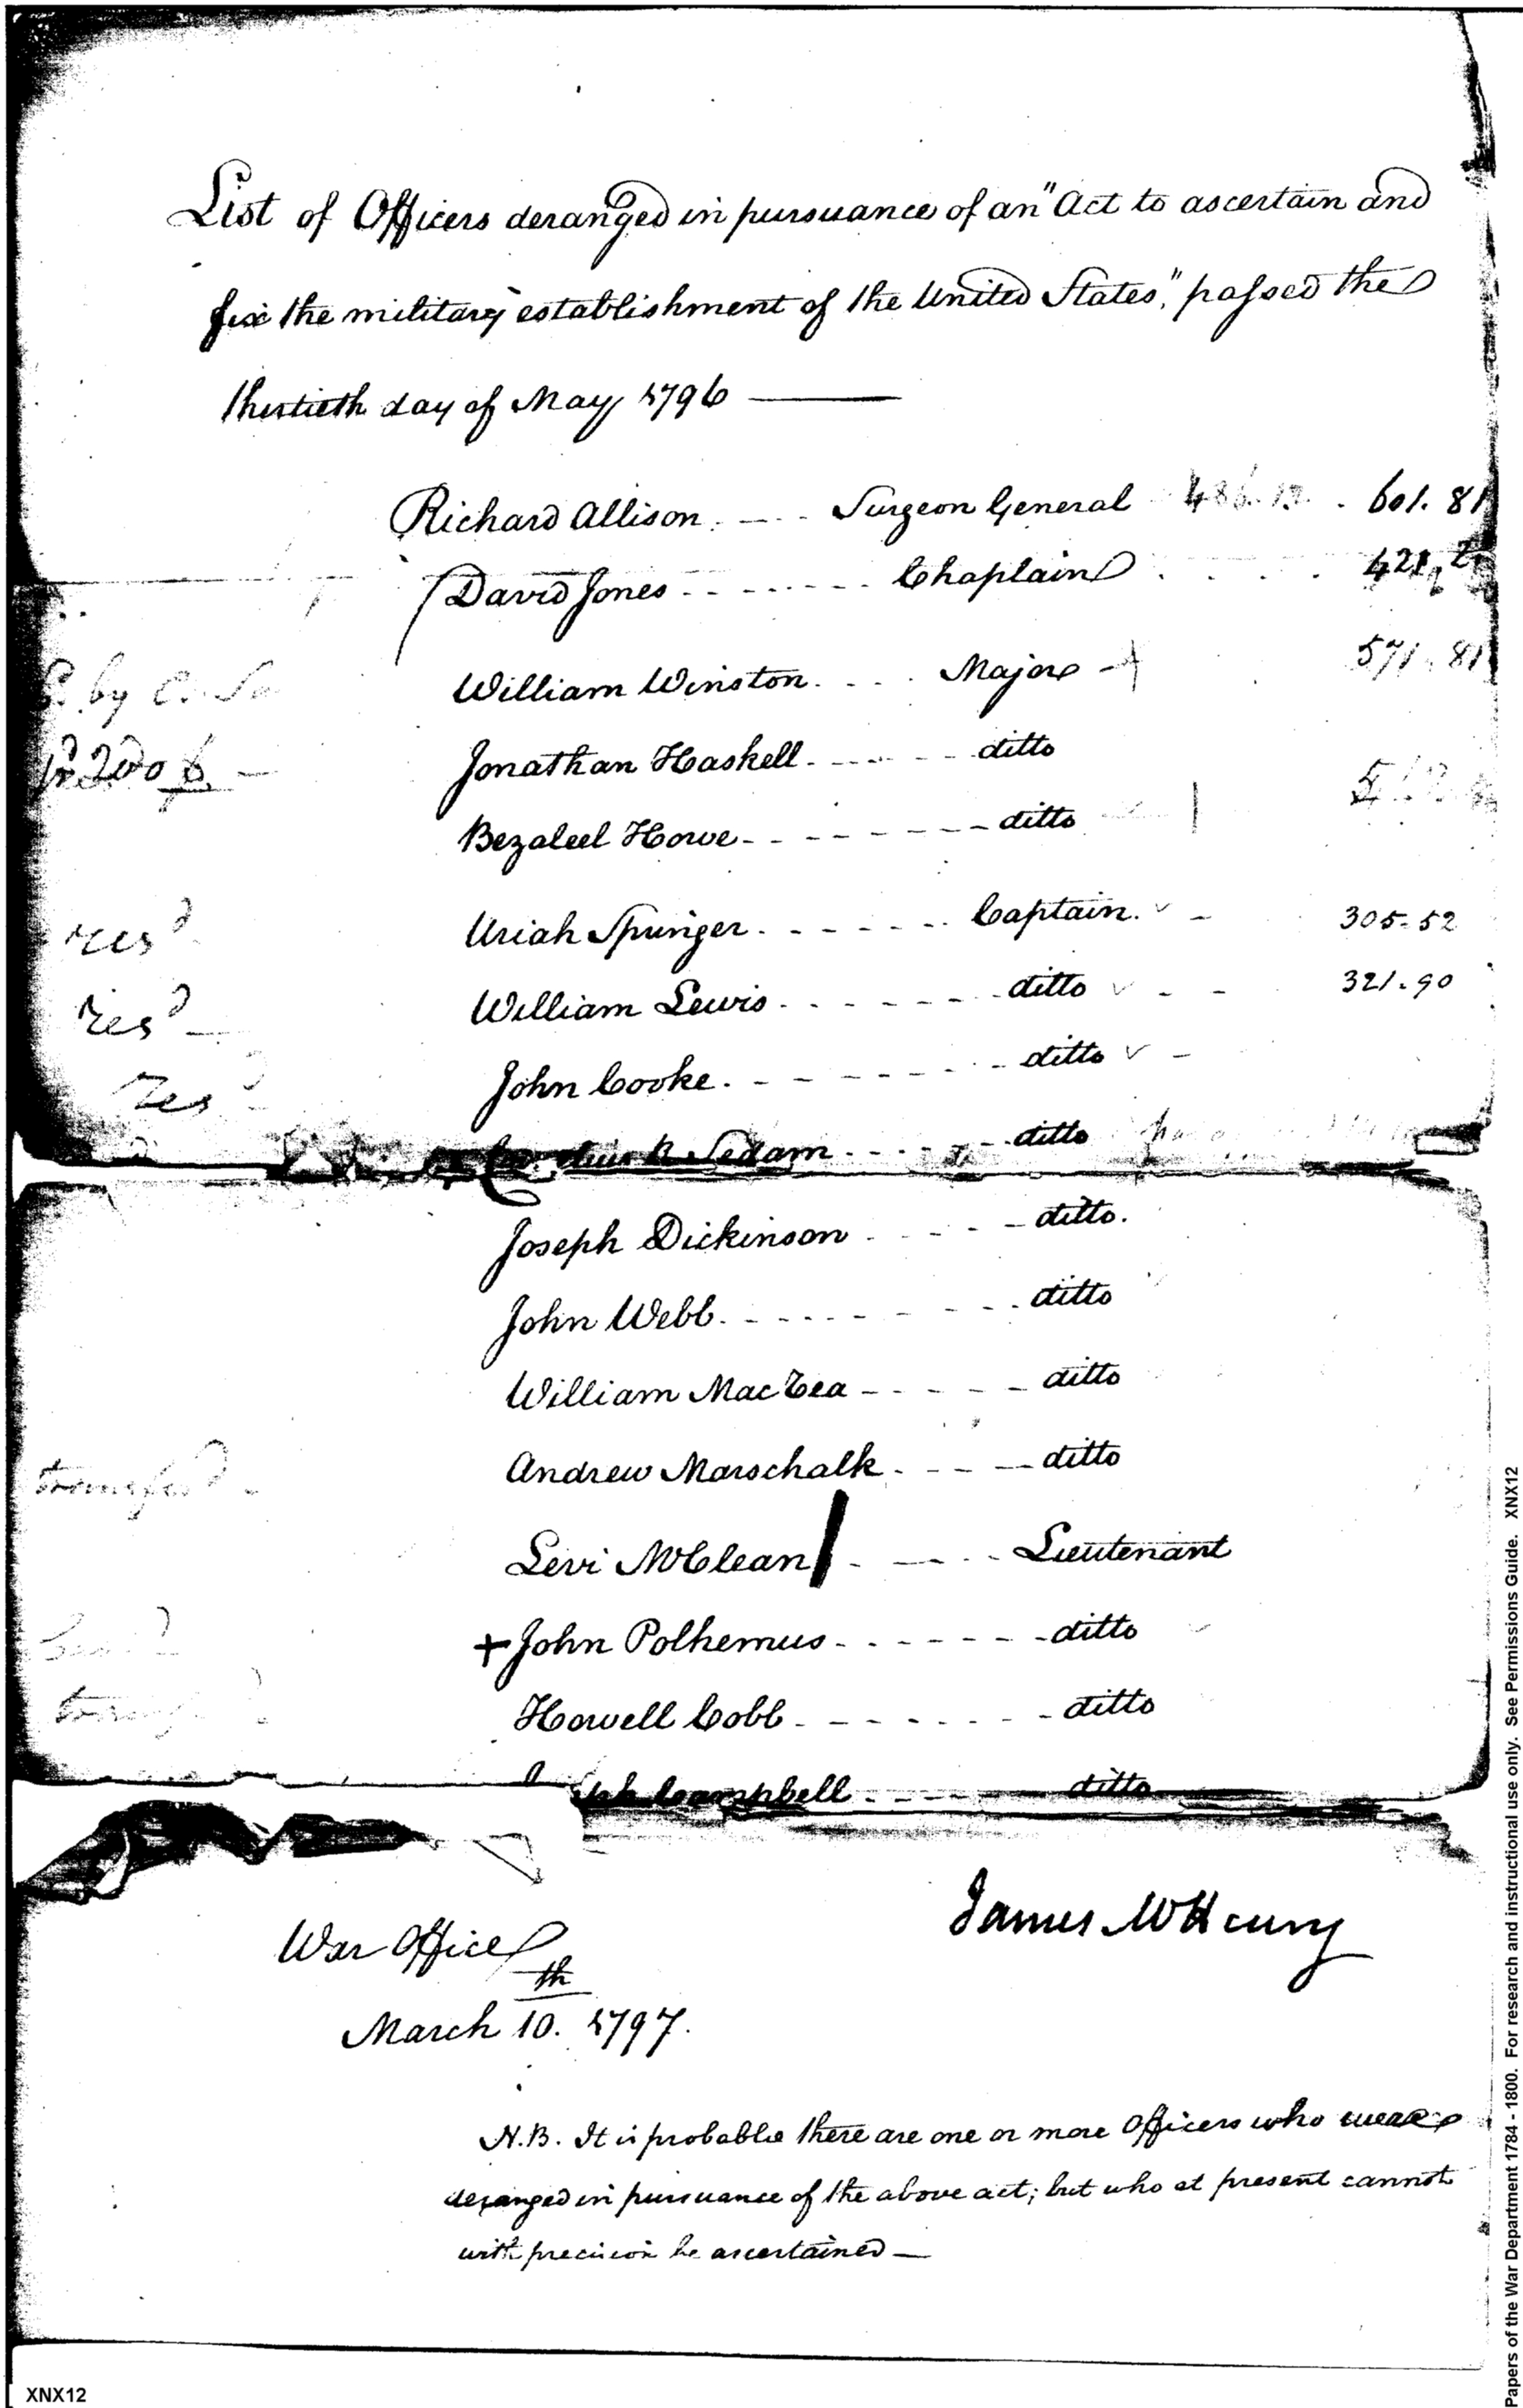 List of Officers deranged in pursuance of an "Act to ascertain and
fix the military establishment of the United States," passed the
thirtieth day of May 1796
Richard Allison. Surgeon General 601. 81
David Jones Chaplain
William Winston. Major 571. 81
by
200
Jonathan Haskell. ditto
Bezaleel Howe ditto
resd Uriah Springer. Captain. 305-52
resd William Lewis ditto 321.90
resd John Cooke. ditto
R Sedam ditto
Joseph Dickinson ditto.
John Webb. ditto
William MacRea ditto
transferd Andrew Marschalk ditto
Levi McClean Lieutenant
+ John Polhemus ditto
Howell Cobb ditto
Campbell ditto
James McHenry
War Office
March 10.th 1797.
N.B. It is probable there are one or more Officers who were
deranged in pursuance of the above act; but who at present cannot
with precision be ascertained
XNX12
Papers of the War Department 1784 - 1800. For research and instructional use only. See Permissions Guide. XNX12